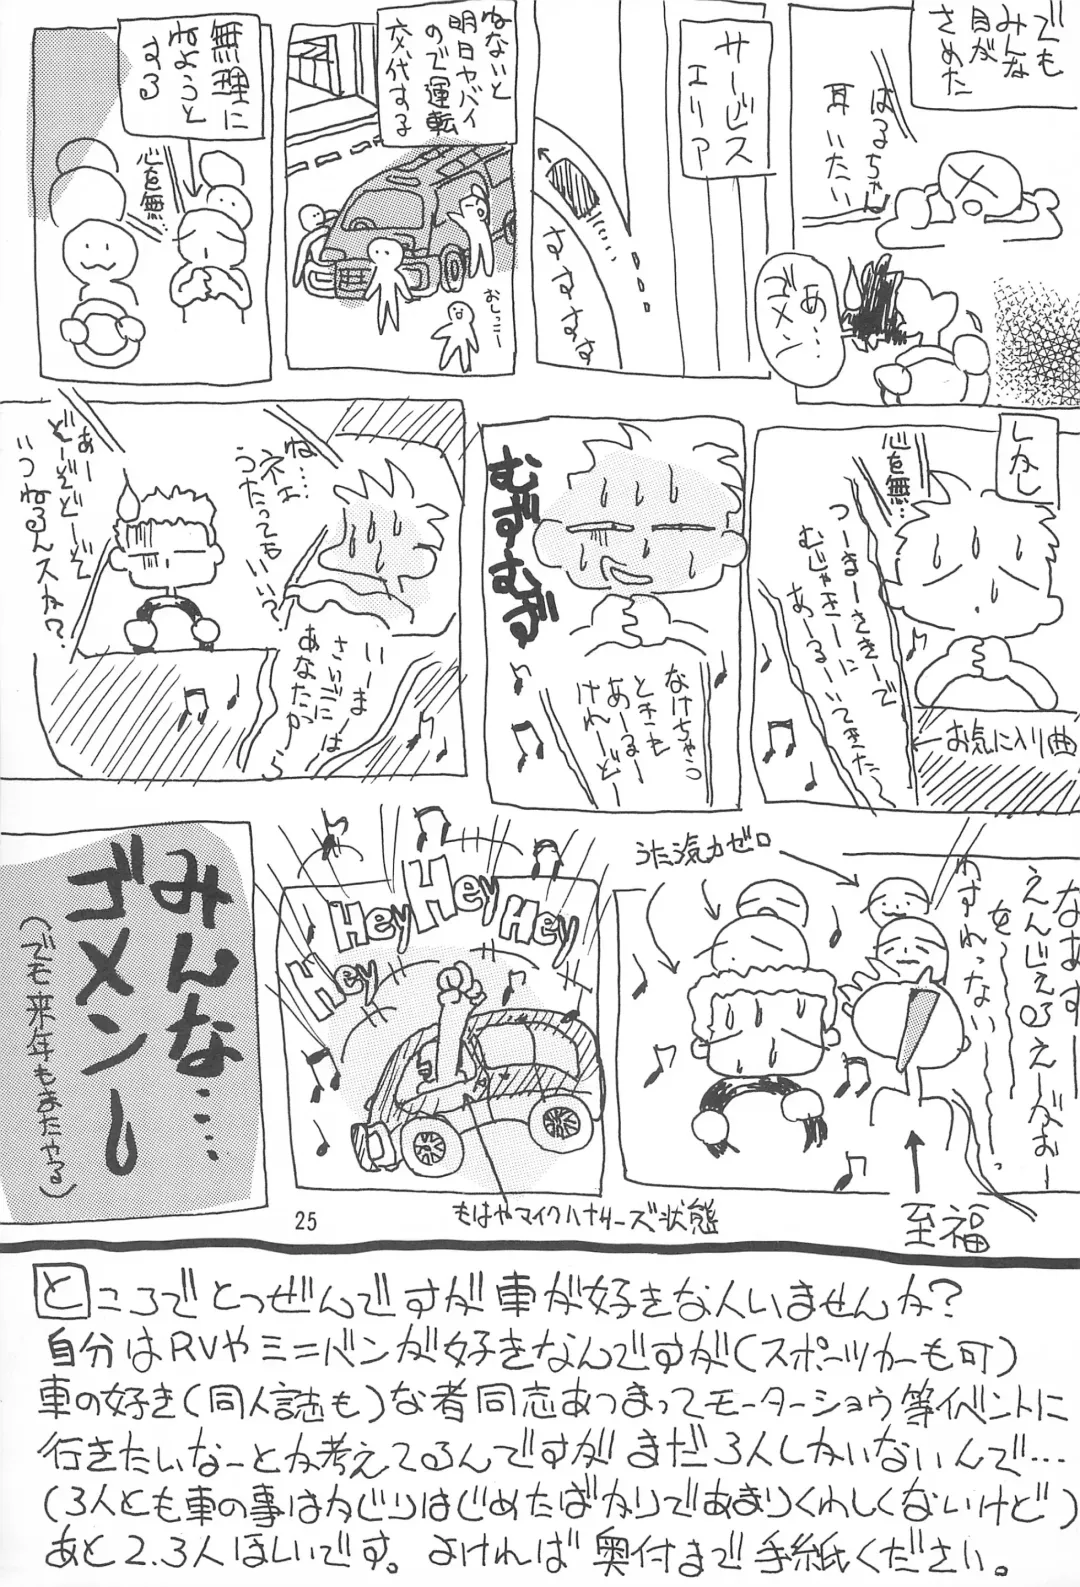 でも
みんな
目が
さめた
はるちゃん
耳いたい
あ…
ゴメン
サービス
エリア
すすすすす
ねないと
明日ヤバイ
ので運転
交代する
おしっこー
無理に
ねようと
する
心を無…
しかし
心を無…
つーまーさきーで
むじゃきーに
あーるーいてきた
お気に入り曲
むずむず
なけちゃう
ときも
あーるー
けれーど
ね…
ネェ
うたっても
いい?
いーま
さいごには
あなただから
あーー
どーぞどーぞ
いつねるんスか?
うた汽力ゼロ
なあすー
えんじぇるえーがおー
をー
わすれっないー
至福
Hey
Hey
Hey
Hey
Hey
もはやマイクハナサーズ状態
みんな…
ゴメンー
(でも来年もまたやる)
25
ところでとつぜんですが車が好きな人いませんか?
自分はRVやミニバンが好きなんですが(スポーツカーも可)
車の好き(同人誌も)な者同志あつまってモーターショウ等イベントに
行きたいなーとか考えてるんですがまだ3人しかいないんで…
(3人とも車の事はかじりはじめたばかりであまりくわしくないけど)
あと2.3人ほしいです。よければ奥付まで手紙ください。